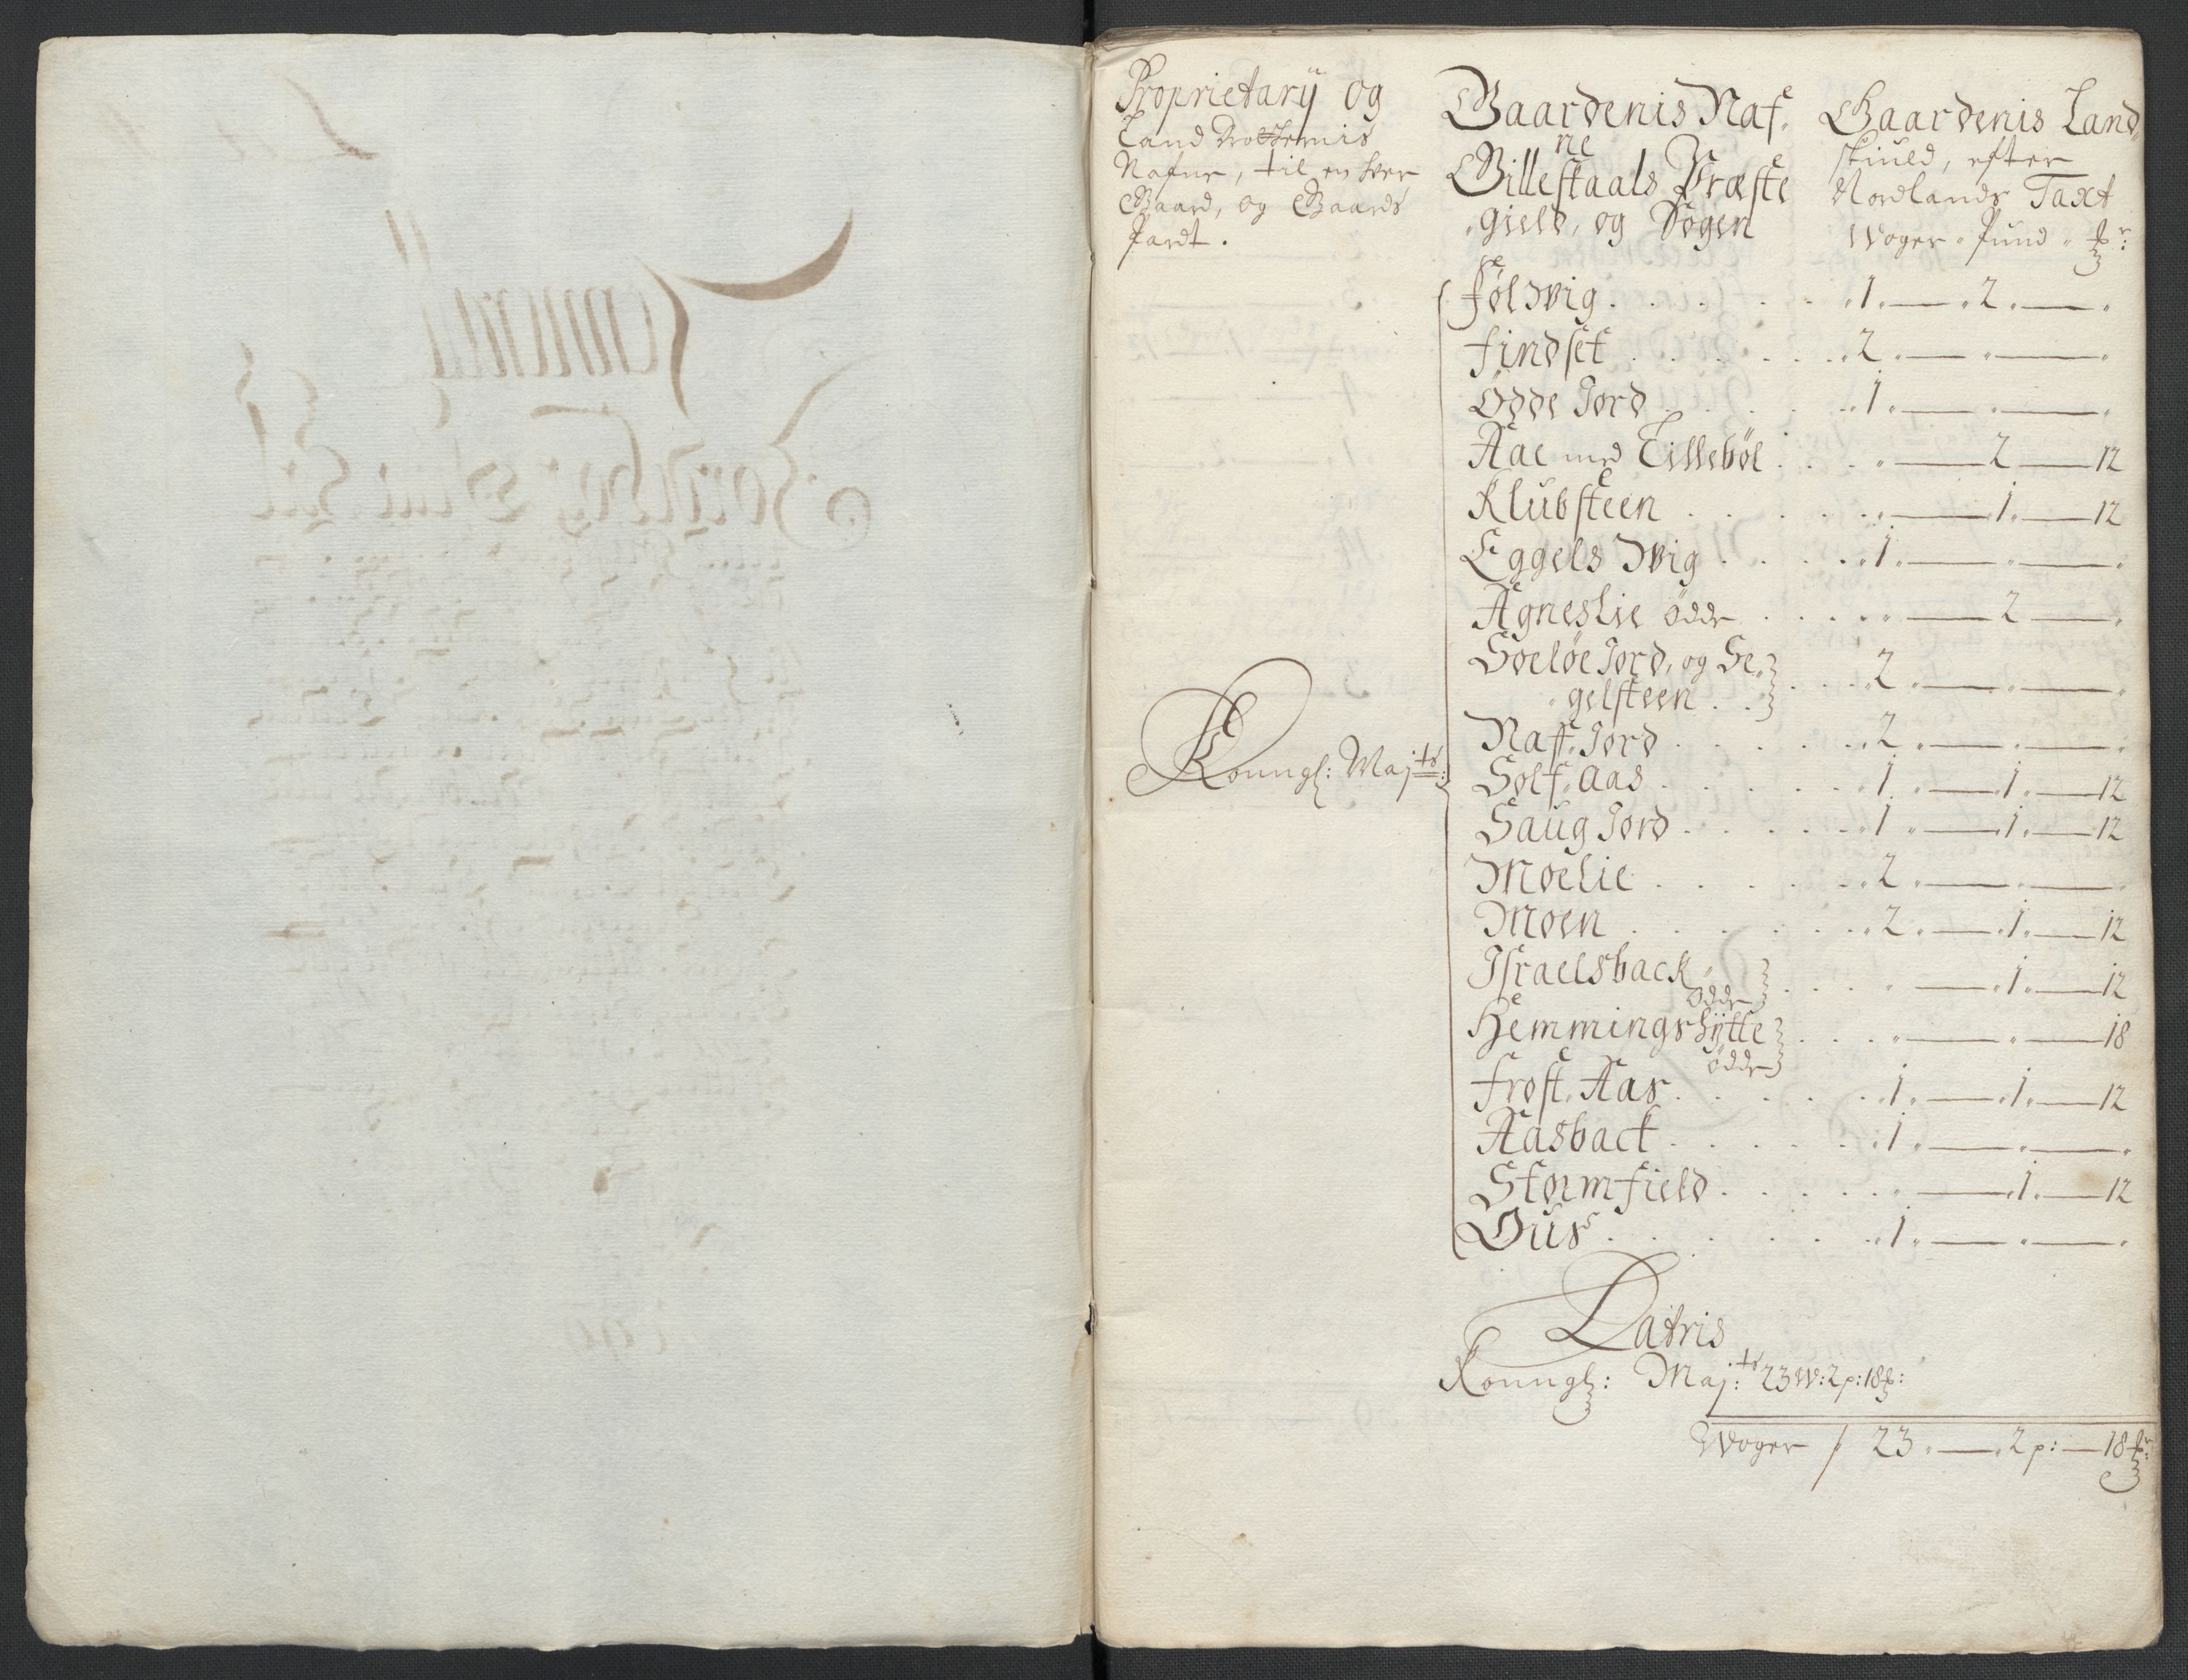 Proprietarÿ og
Land Drotternis
Nafne, til en hver
Gaard, og Gaards
Part.
Gaardenis Naf,
ne
Gillestaals Præste
gield, og Sogen
Gaardenis Land,
skiuld, efter
Nordlands Taxt
Woger " Pund " ℔r:
Følvig . . . . . 1 . — . 2 . — .
Findset . . . . . 2 . — . — .
Ödde Jord . . . . 1 . — . — .
Aae med Tillebøl . . . . — 2 — 12
Klubsteen . . . . . — 1 . — 12
Eggels Vig . . . . 1 . — . — .
Agneslie ödde . . . . — 2 — .
Soeløe Jord, og Se,
gelsteen . . . . . 2 . — . — .
Naf, Jord . . . . . 2 . — . — .
Solf, Aas . . . . . 1 . — 1 . — 12
Saug Jord . . . . . 1 . — 1 . — 12
Moelie . . . . . 2 . — . — .
Moen . . . . . 2 . — 1 . — 12
Israelsback,
ödde . . . . — 1 . — 12
Hemmingshÿtte
ödde . . . . — . — 18
Frost, Aas . . . . . 1 . — 1 . — 12
Aasback . . . . . 1 . — . — .
Stormfield . . . . . — 1 . — 12
Ous . . . . . 1 . — . — .
Konngl: Majts:
Latris
Konngl: Maj:ts 23 W: 2 p: 18 ℔:
Woger / 23 . — . 2 p: — 18 ℔r: